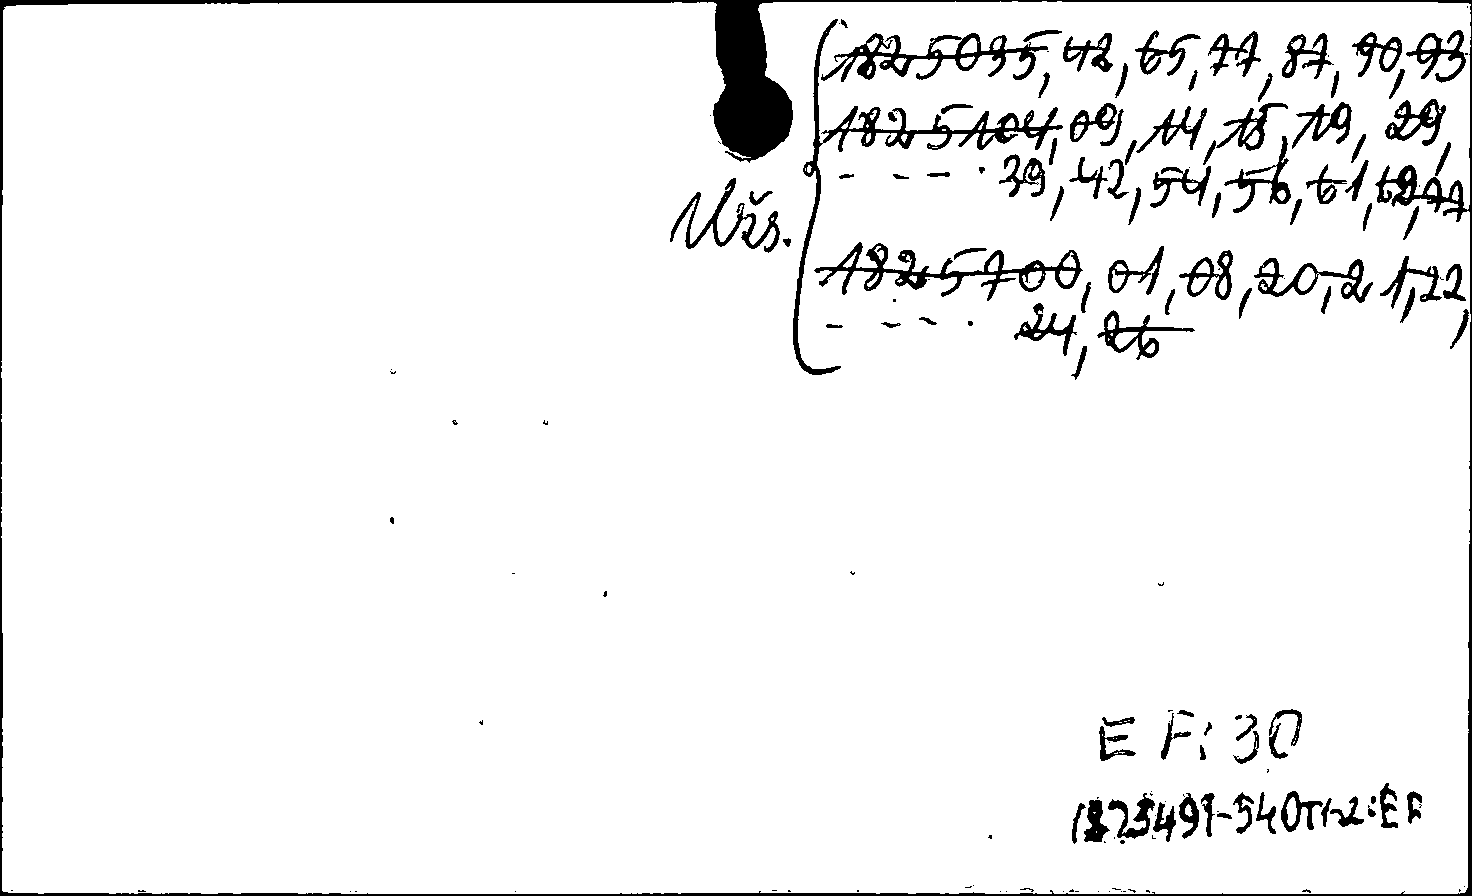 1825035, 42, 65, 77, 87, 90, 93
1825104, 09, 14, 15, 19, 29,
- - - - . 39, 42, 54, 56, 61, 69, 77
Užs.
1825700, 01, 08, 20, 21, 22,
- - - . 24, 26
EF: 30